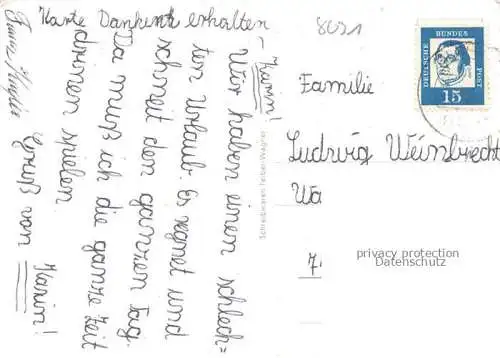 Karte Dankend erhalten
Karin!
Wir haben einen schlech=
ten Urlaub. Es regnet und
schneit den ganzen Tag.
Da muß ich die ganze Zeit
drinnen spielen.
Gruß von Karin!
Schreibwaren Ferber-Wagner
8091
DEUTSCHE BUNDES POST
15
Familie
Ludwig Weinbrecht
Wa
7.
privacy protection
Datenschutz